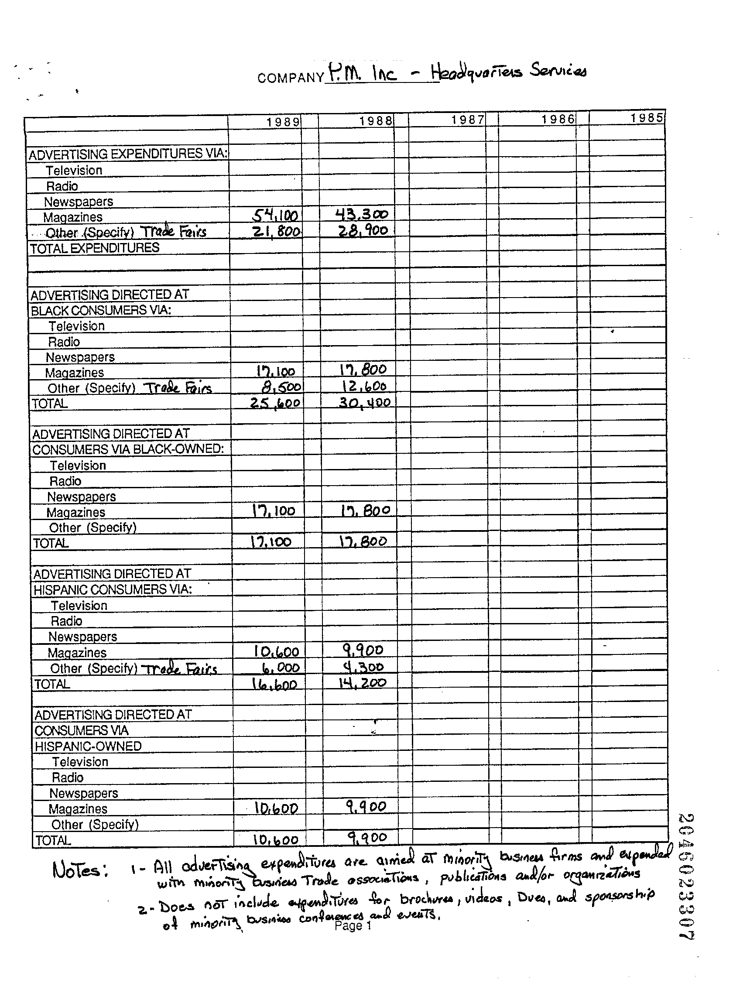 COMPANY P.M. Inc - Headquarters Services
1989 1988 1987 1986 1985
ADVERTISING EXPENDITURES VIA:
Television
Radio
Newspapers
Magazines 54,100 43,300
Other (Specify) Trade Fairs 21,800 28,900
TOTAL EXPENDITURES
ADVERTISING DIRECTED AT
BLACK CONSUMERS VIA:
Television
Radio
Newspapers
Magazines 17,100 17,800
Other (Specify) Trade Fairs 8,500 12,600
TOTAL 25,600 30,400
ADVERTISING DIRECTED AT
CONSUMERS VIA BLACK-OWNED:
Television
Radio
Newspapers
Magazines 17,100 17,800
Other (Specify)
TOTAL 17,100 17,800
ADVERTISING DIRECTED AT
HISPANIC CONSUMERS VIA:
Television
Radio
Newspapers
Magazines 10,600 9,900
Other (Specify) Trade Fairs 6,000 4,300
TOTAL 16,600 14,200
ADVERTISING DIRECTED AT
CONSUMERS VIA
HISPANIC-OWNED
Television
Radio
Newspapers
Magazines 10,600 9,900
Other (Specify)
TOTAL 10,600 9,900
Notes: 1- All advertising expenditures are aimed at minority business firms and expended
with minority business Trade associations, publications and/or organizations
2- Does not include expenditures for brochures, videos, Dues, and sponsorship
of minority business conferences and events.
Page 1
2046023307